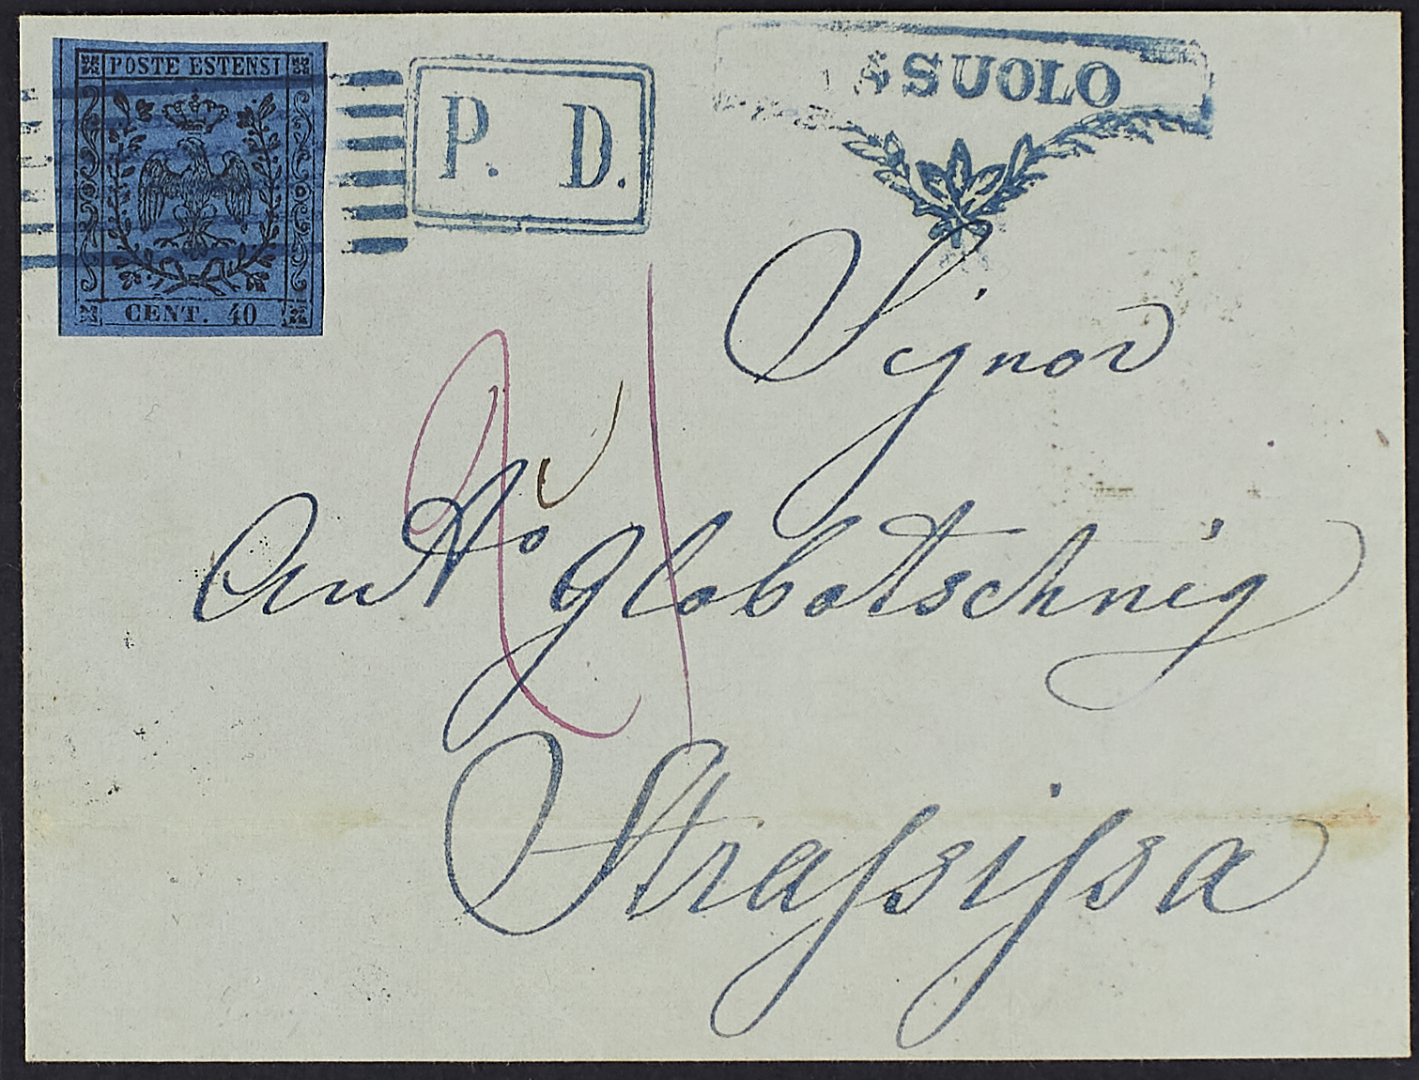 POSTE ESTENSI
CENT. 40
P. D.
SSUOLO
Signor
Ant.º Globotschnig
Strassissa